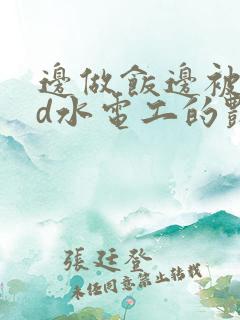 邊做飯邊被
d水電工的
張廷登
未經同意禁止轉載